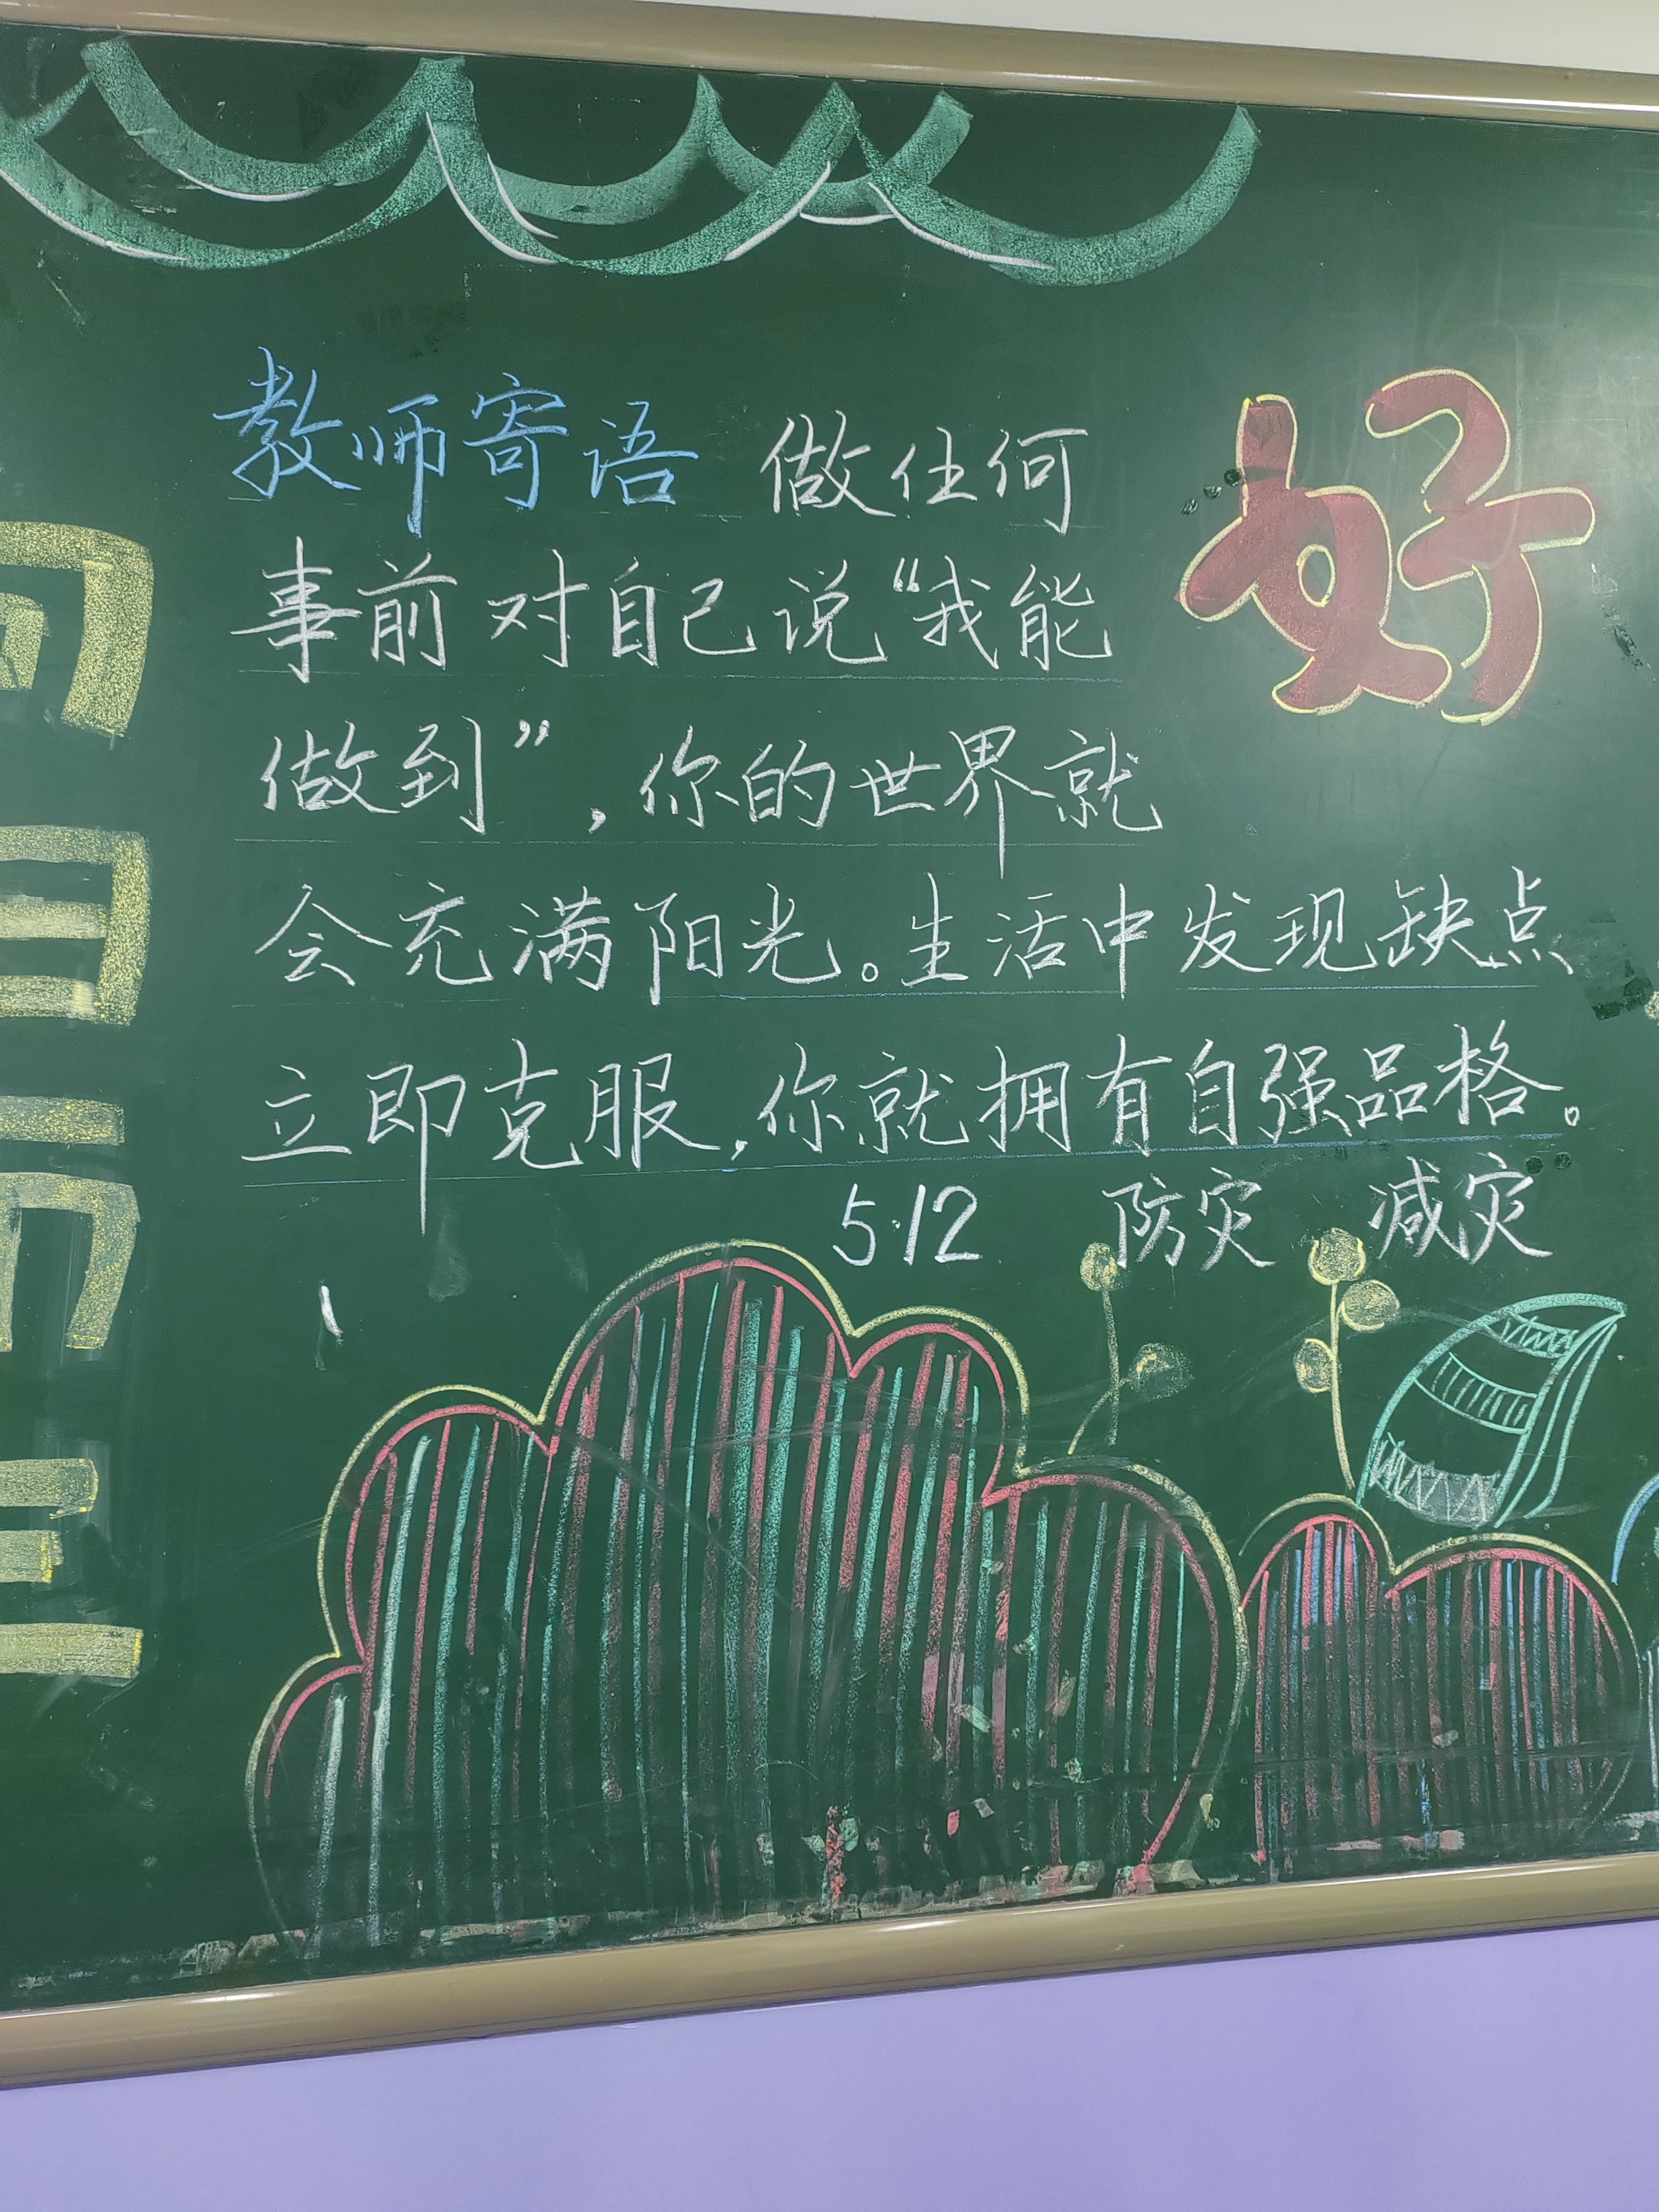 教师寄语 做任何
事前对自己说“我能
做到”,你的世界就
会充满阳光。生活中发现缺点
立即克服,你就拥有自强品格。
5·12 防灾 减灾
好